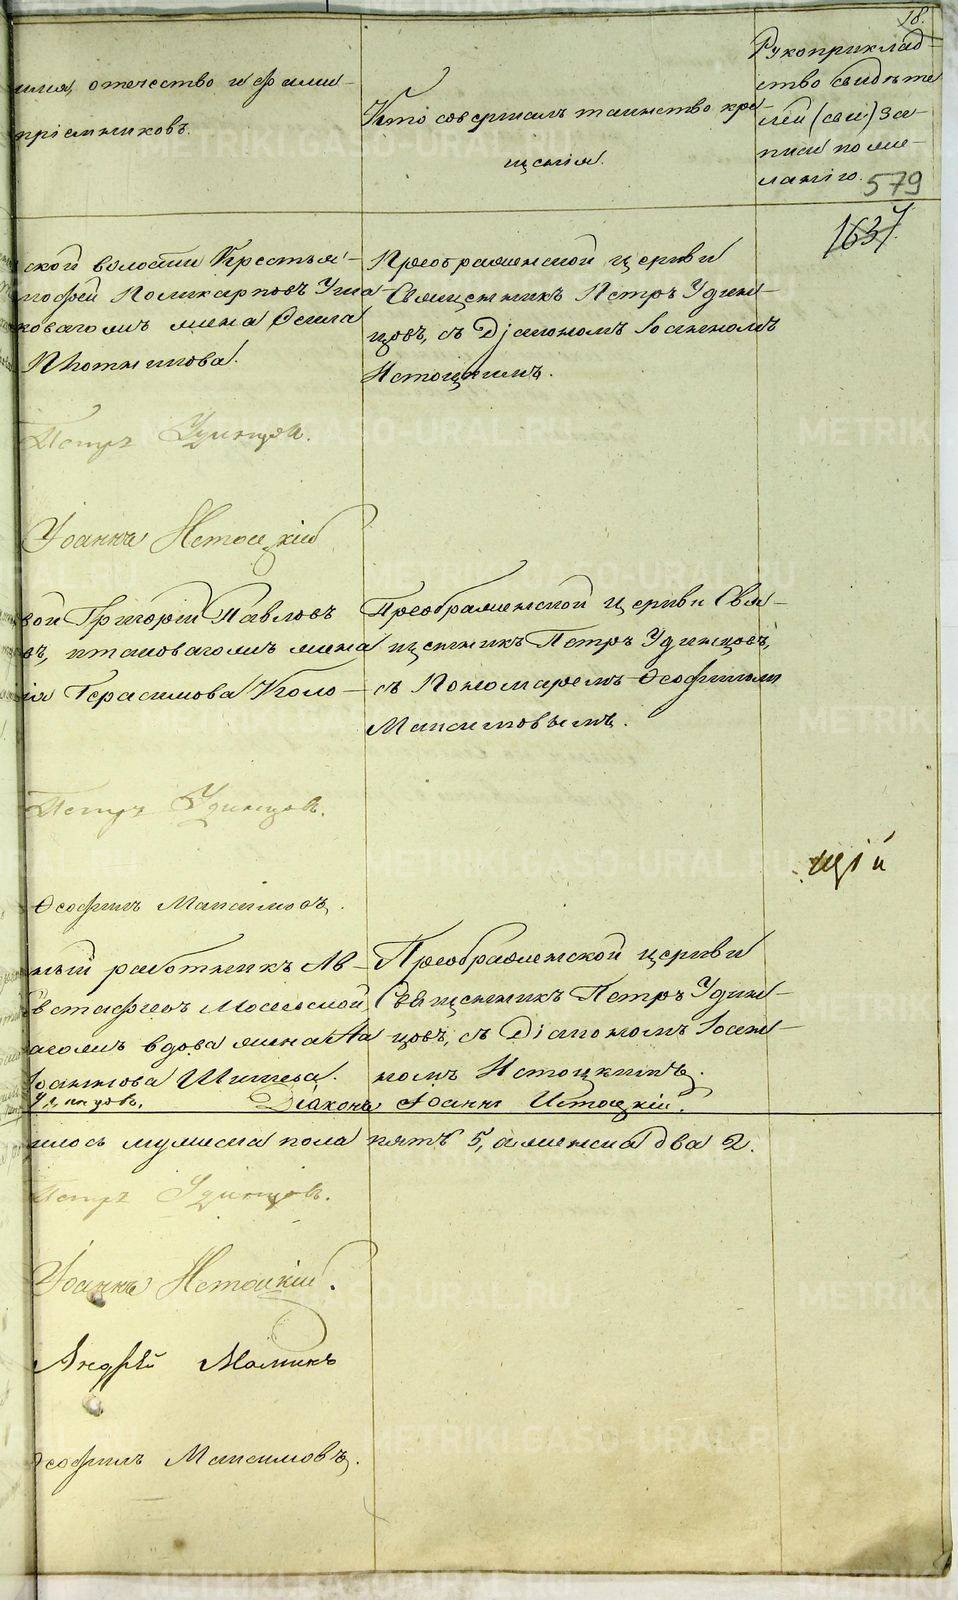 18.
имя, отечество и фами-
пріемниковъ.
Кто совершалъ таинство кре-
щенія.
Рукоприклад-
ство свидѣте
лей (сей) за-
писи по же-
ланію.
579
1637
ской волости Крестья-
Поликарповъ
жена
Плотникова.
Преображенской церкви
Священникъ Петръ Удин-
цовъ, съ Діакономъ Іоанномъ
Истоцкимъ.
Петръ Удинцов.
Іоаннъ Истоцкій
вой Григорій Павловъ
въ, и таковагожъ жена
ія Герасимова Уголо-
Преображенской церкви Свя-
щенникъ Петръ Удинцовъ,
съ Пономаремъ Ѳеофиломъ
Максимовымъ.
Петръ Удинцовъ.
Ѳеофилъ Максимовъ.
ный работникъ Ав-
встафіевъ
агожъ вдова жена
Преображенской церкви
Священникъ Петръ Удин-
цовъ, съ Діакономъ Іоан-
номъ Истоцкимъ.
Удинцовъ. Діаконъ Іоаннъ Истоцкій.
илось мужеска пола пять 5, а женска два 2.
Петръ Удинцовъ.
Іоаннъ Истоцкій.
Андрей
Ѳеофилъ Максимовъ.
цій
METRIKI.GASO-URAL.RU